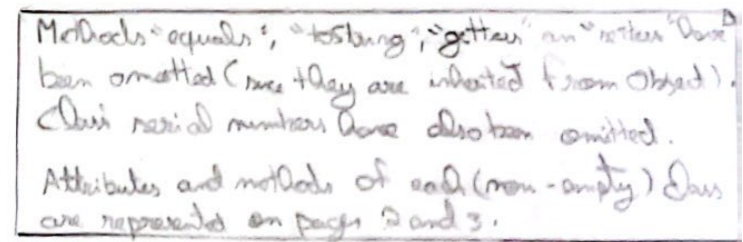 Methods "equals", "toString", "getters" an "setters" have
been omitted (since they are inherited from Object).
Class serial numbers have also been omitted.
Attributes and methods of each (non-empty) class
are represented on pages 2 and 3.